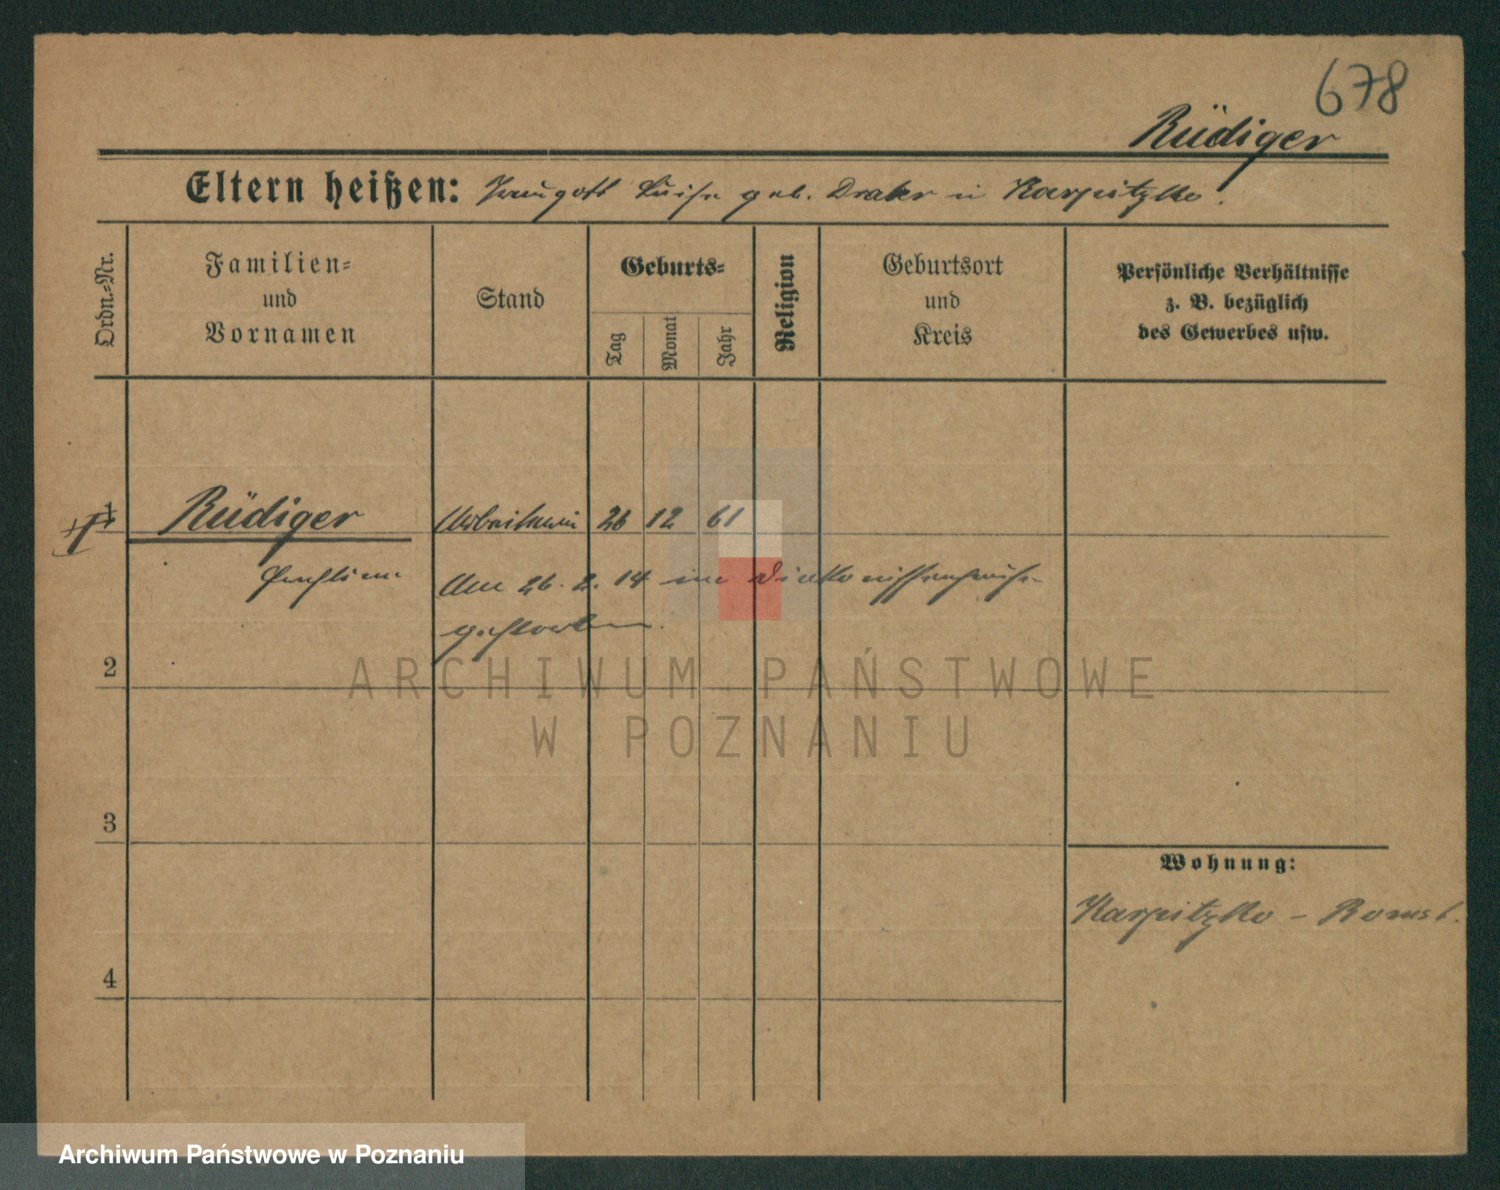 678
Rüdiger
Eltern heißen: Traugott Luise geb. Draber in Karpitzko.
Ordn.-Nr.
Familien- und Vornamen
Stand
Geburts-
Tag
Monat
Jahr
Religion
Geburtsort und Kreis
Persönliche Verhältnisse
z. B. bezüglich
des Gewerbes usw.
1 Rüdiger Arbeiterin 26 12 61
Pauline Am 26. 2. 14 im Diakonissenhause
gestorben.
2
ARCHIWUM PAŃSTWOWE
W POZNANIU
3
Wohnung:
Karpitzko - Bomst.
4
Archiwum Państwowe w Poznaniu